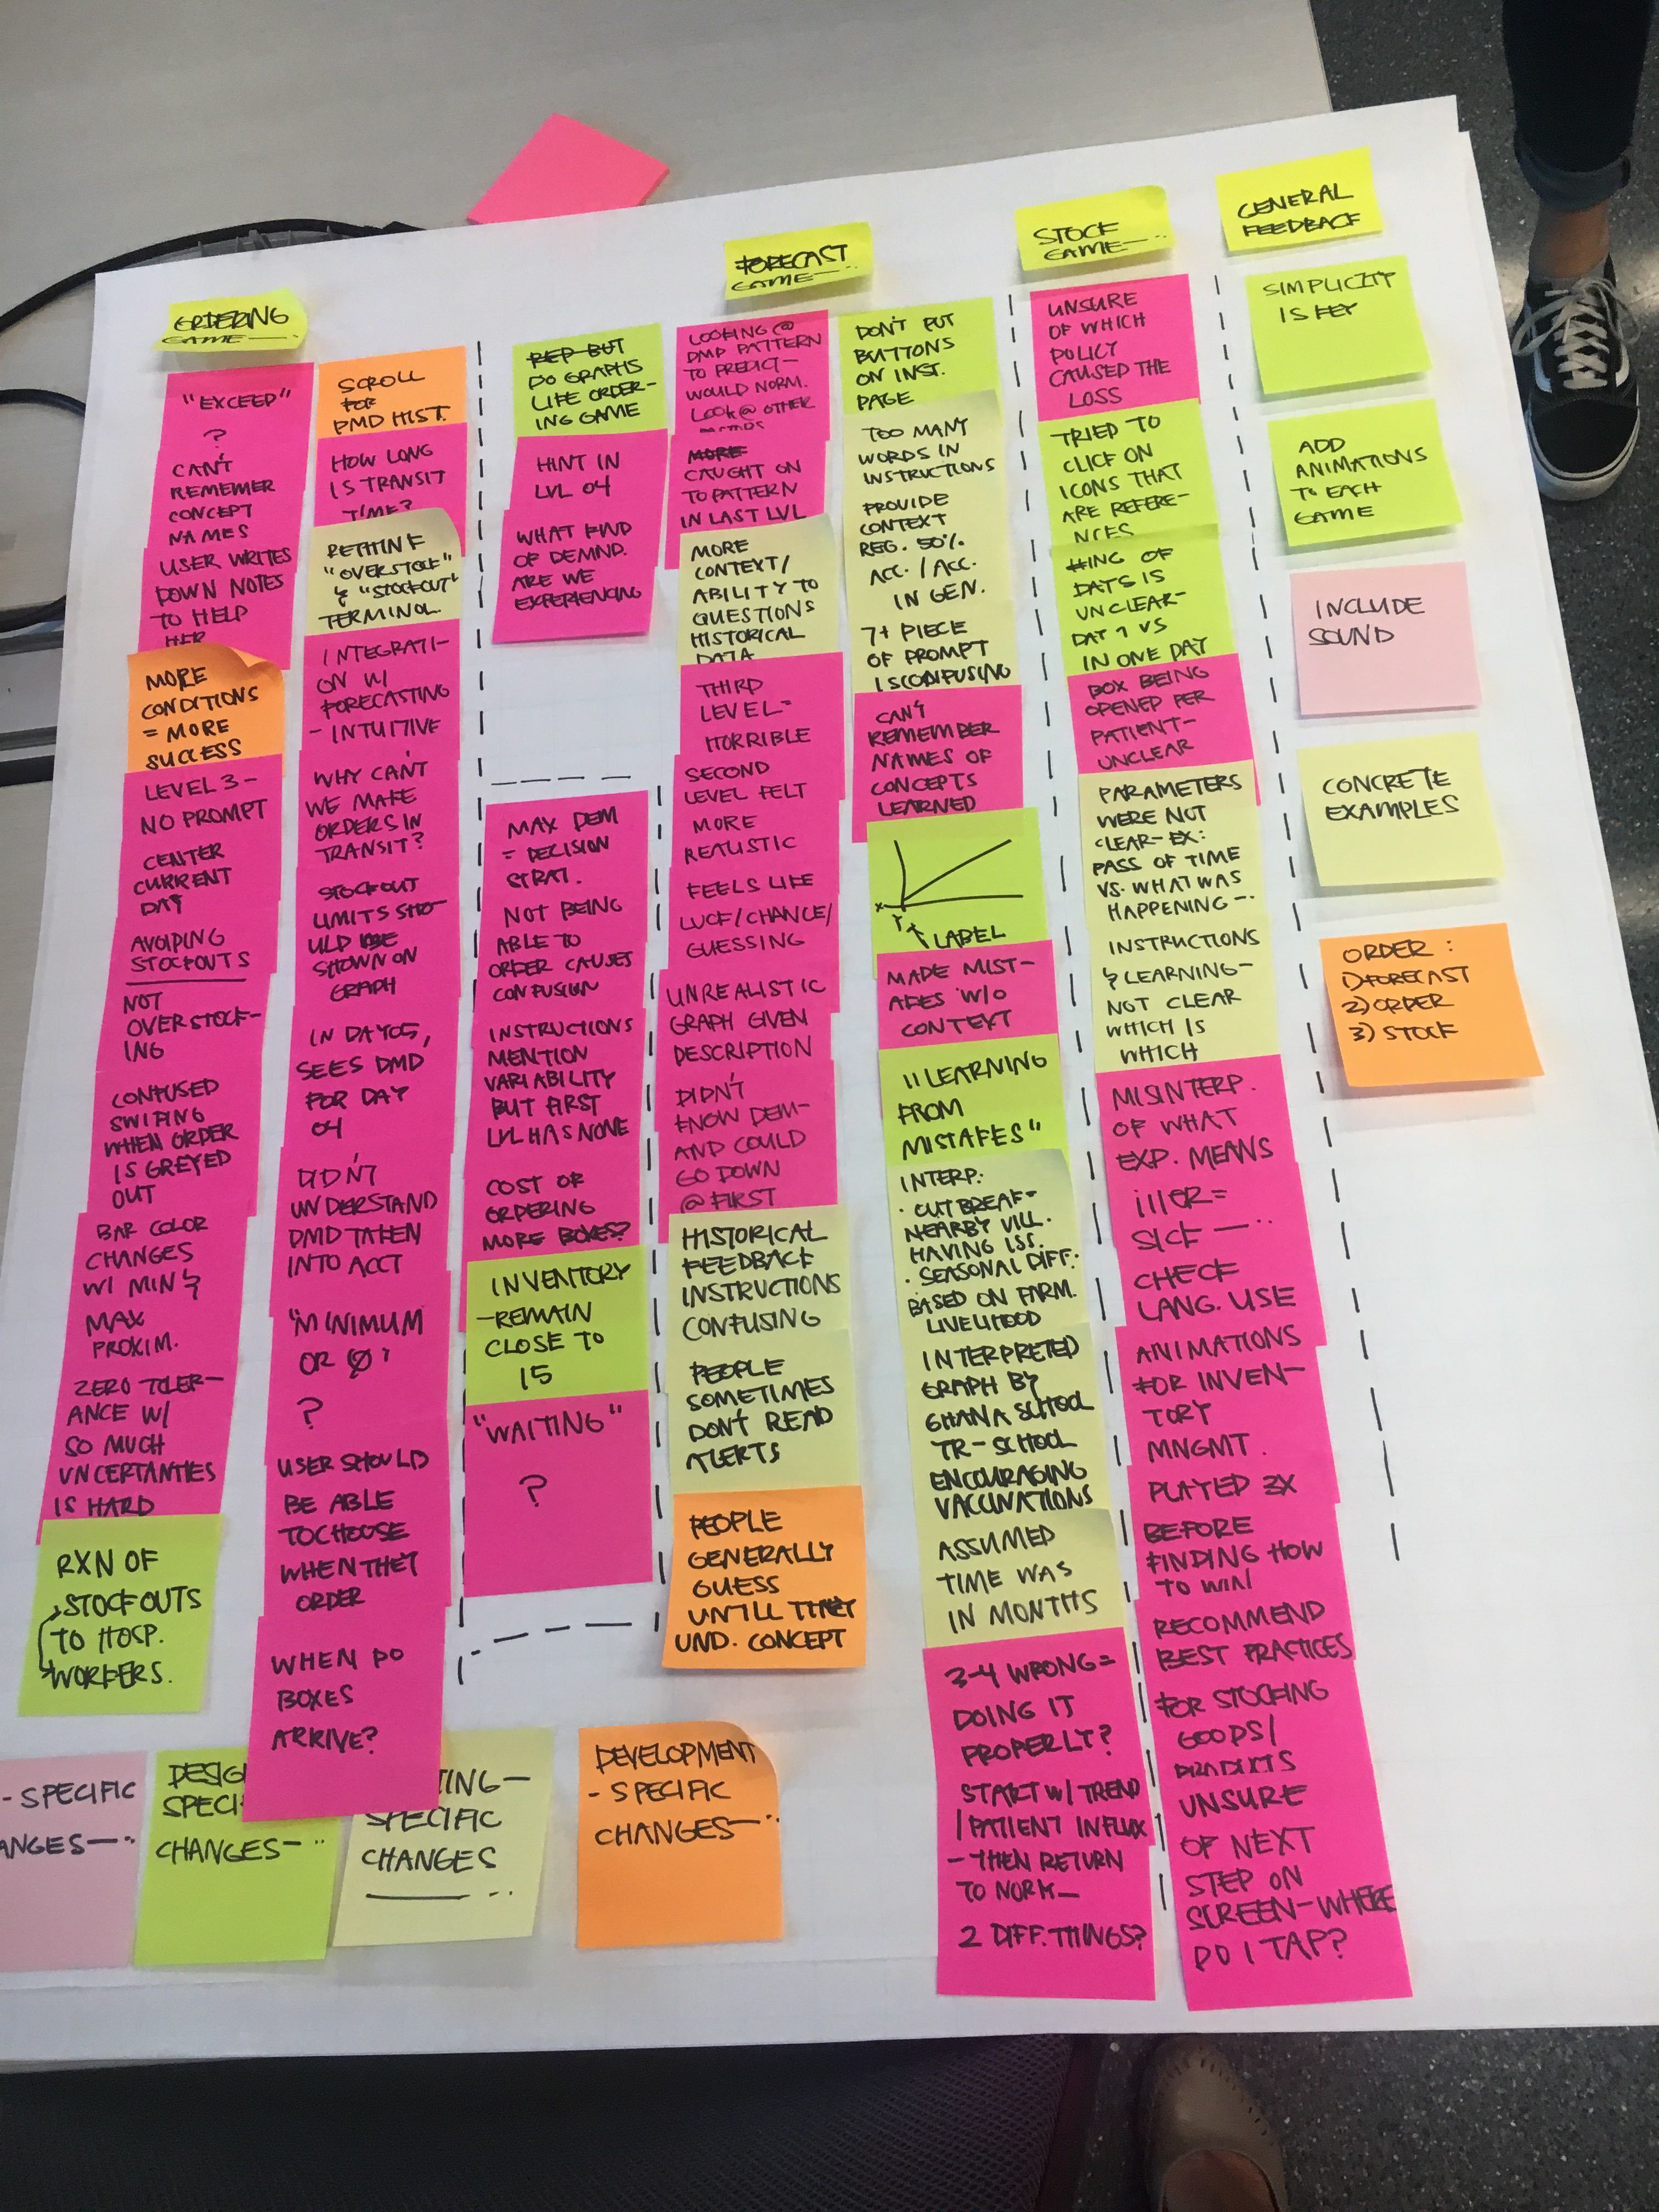 ORDERING
GAME
"EXCEED"
?
CAN'T
REMEMER
CONCEPT
NAMES
USER WRITES
DOWN NOTES
TO HELP
HER
MORE
CONDITIONS
= MORE
SUCCESS
LEVEL 3 -
NO PROMPT
CENTER
CURRENT
DAY
AVOIDING
STOCKOUTS
NOT
OVERSTOCK-
ING
CONFUSED
SWIPING
WHEN ORDER
IS GREYED
OUT
BAR COLOR
CHANGES
W/ MIN &
MAX
PROXIM.
ZERO TOLER-
ANCE W/
SO MUCH
UNCERTANTIES
IS HARD
RXN OF
STOCKOUTS
TO HOSP.
WORKERS.
SCROLL
FOR
DMD HIST.
HOW LONG
IS TRANSIT
TIME?
RETHINK
"OVERSTOCK"
& "STOCKOUT"
TERMINOL.
INTEGRATI-
ON W/
FORECASTING
- INTUITIVE
WHY CAN'T
WE MAKE
ORDERS IN
TRANSIT?
STOCKOUT
LIMITS SHO-
ULD BE
SHOWN ON
GRAPH
IN DAY 05,
SEES DMD
FOR DAY
04
DIDN'T
UNDERSTAND
DMD TAKEN
INTO ACCT
"MINIMUM
OR 0"
?
USER SHOULD
BE ABLE
TO CHOOSE
WHEN THEY
ORDER
WHEN DO
BOXES
ARRIVE?
FORECAST
GAME
REP BUT
DO GRAPHS
LIKE ORDER-
ING GAME
HINT IN
LVL 04
WHAT KIND
OF DEMND.
ARE WE
EXPERIENCING
MAX DEM
= DECISION
STRAT.
NOT BEING
ABLE TO
ORDER CAUSES
CONFUSION
INSTRUCTIONS
MENTION
VARIABILITY
BUT FIRST
LVL HAS NONE
COST OF
ORDERING
MORE BOXES?
INVENTORY
-REMAIN
CLOSE TO
15
"WAITING"
?
LOOKING @
DMD PATTERN
TO PREDICT -
WOULD NORM.
LOOK @ OTHER
MORE
CAUGHT ON
TO PATTERN
IN LAST LVL
MORE
CONTEXT/
ABILITY TO
QUESTIONS
HISTORICAL
DATA
THIRD
LEVEL =
HORRIBLE
SECOND
LEVEL FELT
MORE
REALISTIC
FEELS LIKE
LUCK/CHANCE/
GUESSING
UNREALISTIC
GRAPH GIVEN
DESCRIPTION
DIDN'T
KNOW DEM-
AND COULD
GO DOWN
@ FIRST
HISTORICAL
FEEDBACK
INSTRUCTIONS
CONFUSING
PEOPLE
SOMETIMES
DON'T READ
ALERTS
PEOPLE
GENERALLY
GUESS
UNTILL THEY
UND. CONCEPT
DON'T PUT
BUTTONS
ON INST.
PAGE
TOO MANY
WORDS IN
INSTRUCTIONS
PROVIDE
CONTEXT
REG. 50%
ACC. / ACC.
IN GEN.
7+ PIECE
OF PROMPT
IS CONFUSING
CAN'T
REMEMBER
NAMES OF
CONCEPTS
LEARNED
X
Y
LABEL
MADE MIST-
AKES W/O
CONTEXT
"LEARNING
FROM
MISTAKES"
INTERP:
· OUTBREAK -
NEARBY VILL.
HAVING ISS.
· SEASONAL DIFF.
BASED ON FARM.
LIVELIHOOD
INTERPRETED
GRAPH BY
GHANA SCHOOL
TR - SCHOOL
ENCOURAGING
VACCINATIONS
ASSUMED
TIME WAS
IN MONTHS
3-4 WRONG =
DOING IT
PROPERLY?
START W/ TREND
/ PATIENT INFLUX
- THEN RETURN
TO NORM
2 DIFF. THINGS?
STOCK
GAME
UNSURE
OF WHICH
POLICY
CAUSED THE
LOSS
TRIED TO
CLICK ON
ICONS THAT
ARE REFERE-
NCES
#ING OF
DAYS IS
UNCLEAR -
DAY 1 VS
IN ONE DAY
BOX BEING
OPENED PER
PATIENT -
UNCLEAR
PARAMETERS
WERE NOT
CLEAR - EX:
PASS OF TIME
VS. WHAT WAS
HAPPENING
INSTRUCTIONS
& LEARNING -
NOT CLEAR
WHICH IS
WHICH
MISINTERP.
OF WHAT
EXP. MEANS
illER =
SICK
CHECK
LANG. USE
ANIMATIONS
FOR INVEN-
TORY
MNGMT.
PLAYED 3X
BEFORE
FINDING HOW
TO WIN
RECOMMEND
BEST PRACTICES
FOR STOCKING
GOODS/
PRODUCTS
UNSURE
OF NEXT
STEP ON
SCREEN - WHERE
DO I TAP?
GENERAL
FEEDBACK
SIMPLICITY
IS KEY
ADD
ANIMATIONS
TO EACH
GAME
INCLUDE
SOUND
CONCRETE
EXAMPLES
ORDER:
1) FORECAST
2) ORDER
3) STOCK
- SPECIFIC
ANGES
DESIG
SPECI
CHANGES
TING -
SPECIFIC
CHANGES
DEVELOPMENT
- SPECIFIC
CHANGES